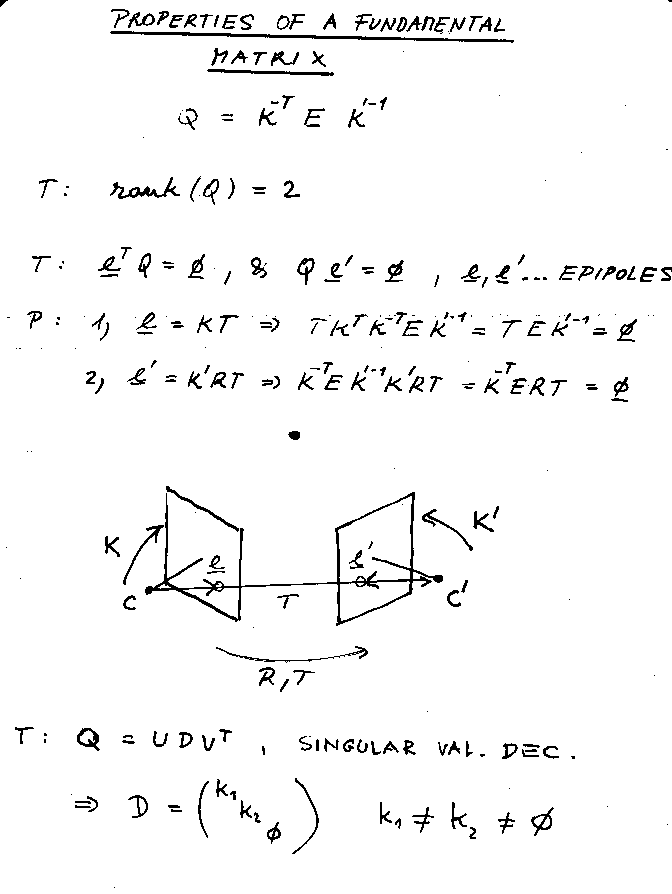 PROPERTIES OF A FUNDAMENTAL
MATRIX
Q = K^{-T} E K'^{-1}
T: rank (Q) = 2
T: e^T Q = ∅, & Q e' = ∅, e, e'... EPIPOLES
P: 1, e = KT ⇒ T K^T K^{-T} E K'^{-1} = T E K'^{-1} = ∅
2, e' = K'RT ⇒ K^{-T} E K'^{-1} K'RT = K^{-T} ERT = ∅
K e e' K'
C T C'
R,T
T: Q = U D V^T, SINGULAR VAL. DEC.
⇒ D = (k_1 k_2 ∅) k_1 ≠ k_2 ≠ ∅